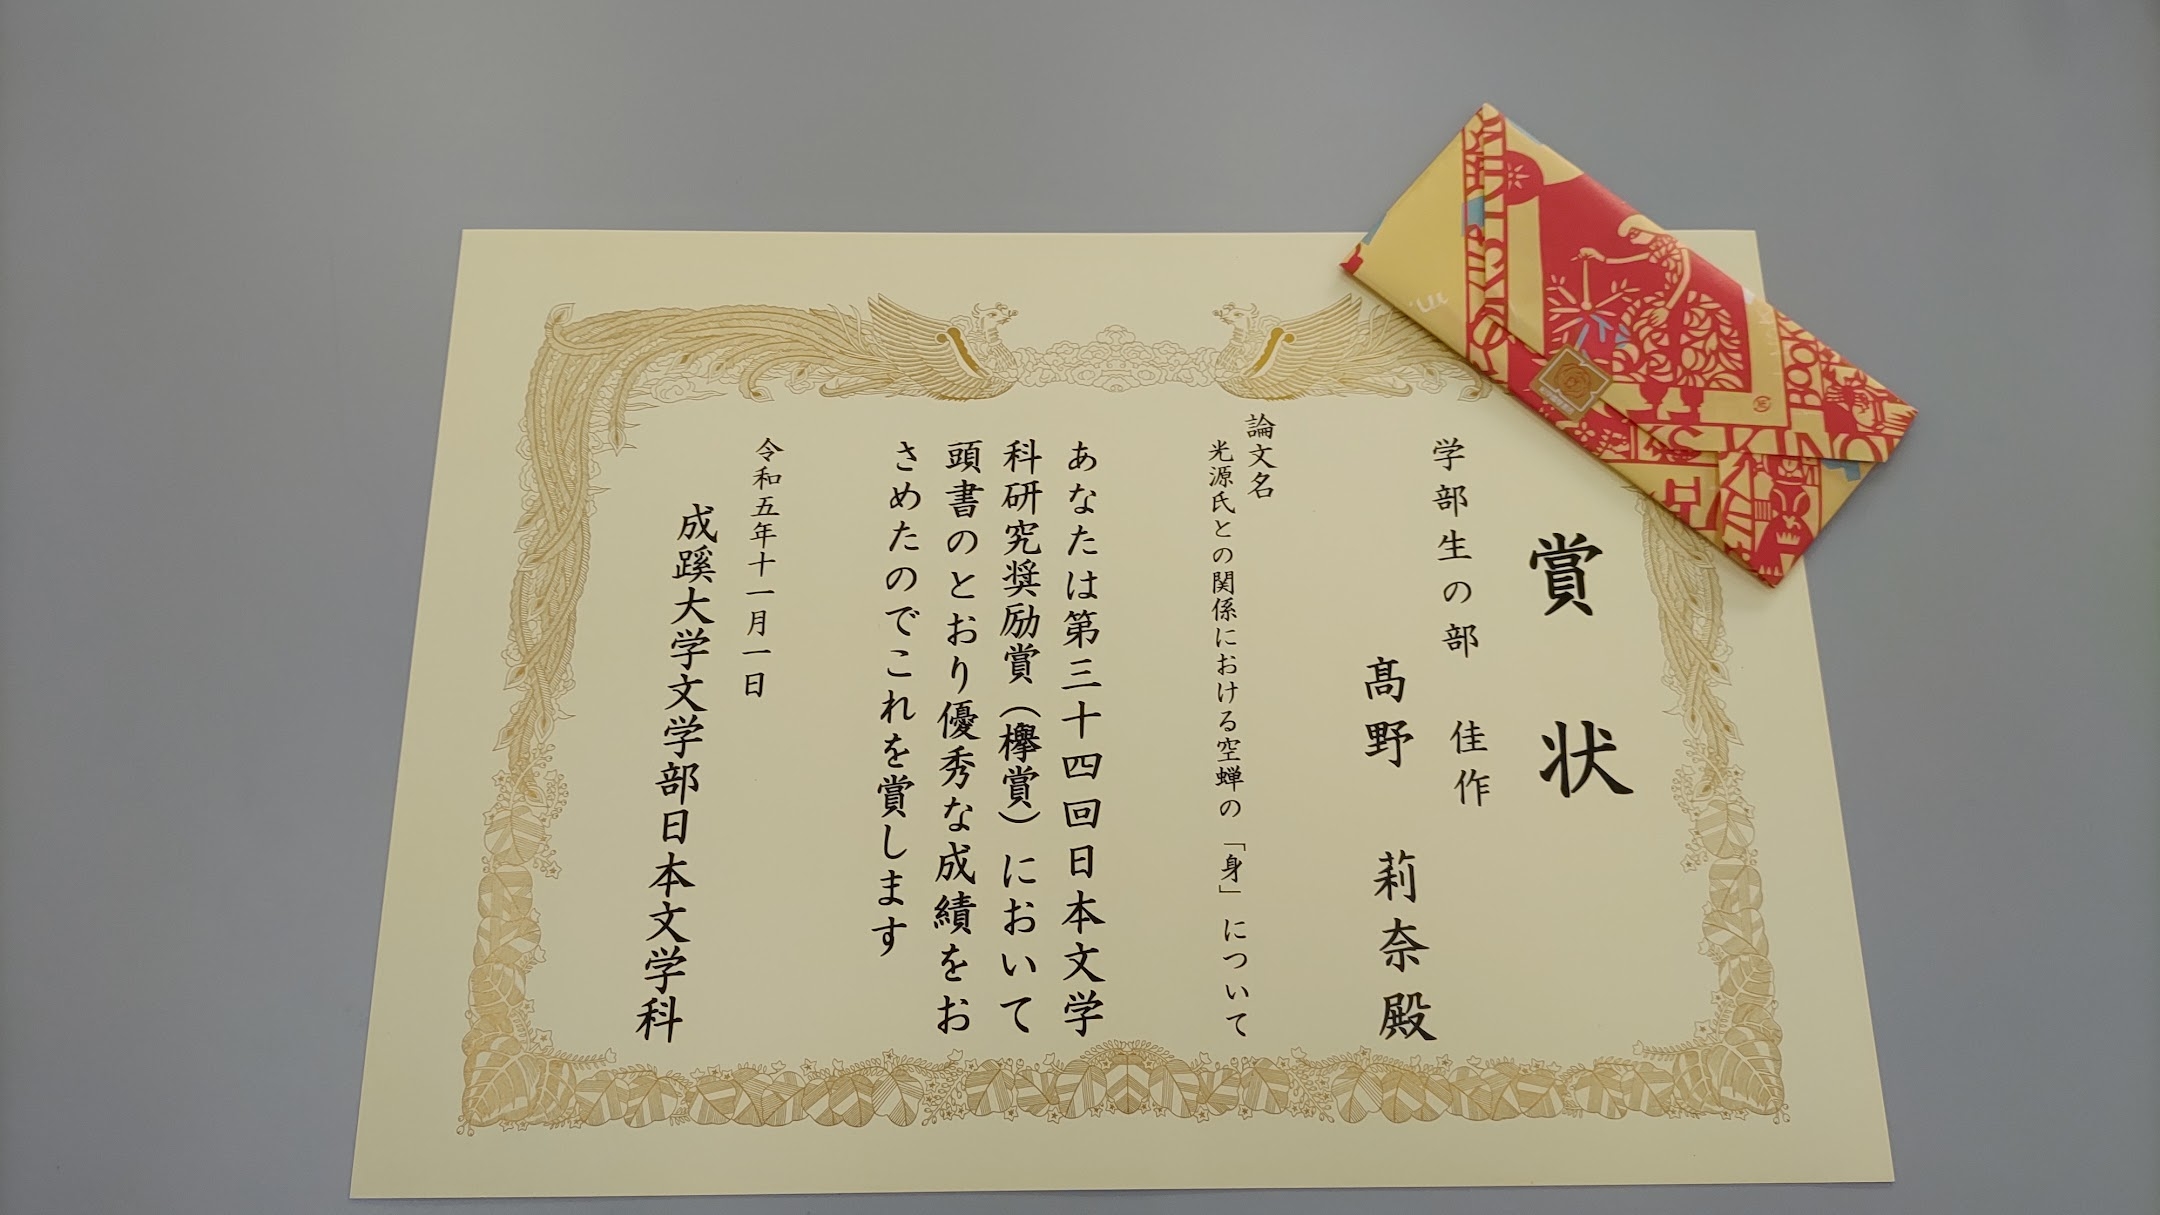 賞状
学部生の部 佳作
髙野 莉奈殿
論文名
光源氏との関係における空蝉の「身」について
あなたは第三十四回日本文学
科研究奨励賞（欅賞）において
頭書のとおり優秀な成績をお
さめたのでこれを賞します
令和五年十一月一日
成蹊大学文学部日本文学科
BOOK